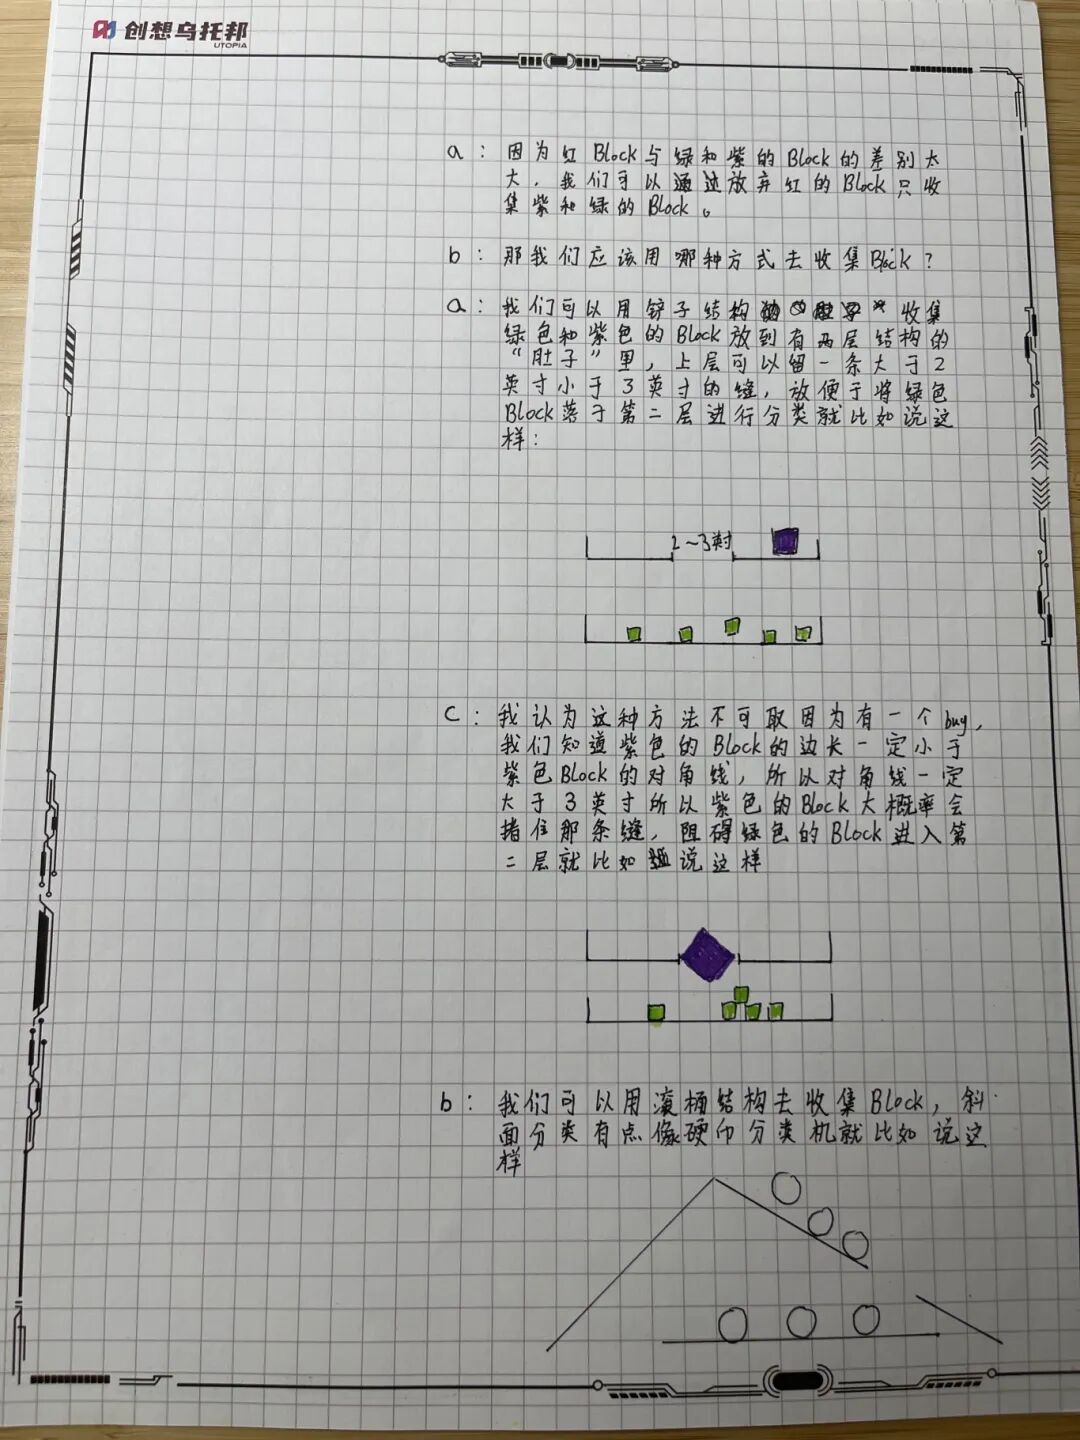 创想乌托邦
UTOPIA
a：因为红Block与绿和紫的Block的差别太
大，我们可以通过放弃红的Block只收
集紫和绿的Block。
b：那我们应该用哪种方式去收集Block？
a：我们可以用铲子结构收集
绿色和紫色的Block放到有两层结构的
“肚子”里，上层可以留一条大于2
英寸小于3英寸的缝，放便于将绿色
Block落于第二层进行分类就比如说这
样：
2～3英寸
C：我认为这种方法不可取因为有一个bug，
我们知道紫色的Block的边长一定小于
紫色Block的对角线，所以对角线一定
大于3英寸所以紫色的Block大概率会
堵住那条缝，阻碍绿色的Block进入第
二层就比如说这样
b：我们可以用滚桶结构去收集Block，斜
面分类有点像硬币分类机就比如说这
样